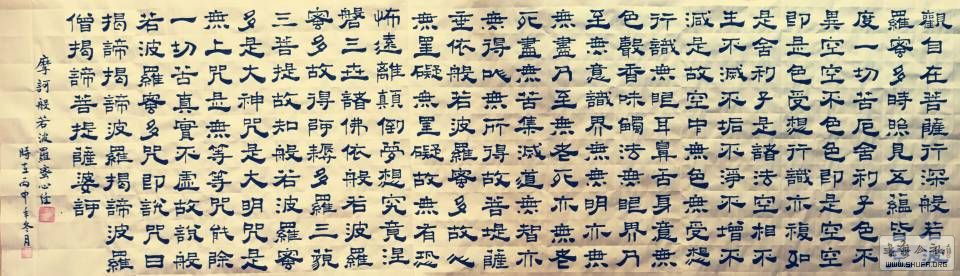 觀自在菩薩行深般若波
羅蜜多時照見五蘊皆空
度一切苦厄舍利子色不
異空空不異色色即是空空
即是色受想行識亦複如
是舍利子是諸法空相不
生不滅不垢不淨不增不
減是故空中無色無受想
行識無眼耳鼻舌身意無
色聲香味觸法無眼界乃
至無意識界無無明亦無
無盡乃至無老死亦無老
死盡無苦集滅道無智亦
無得以無所得故菩提薩
埵依般若波羅蜜多故心
無罣礙無罣礙故無有恐
怖遠離顛倒夢想究竟涅
磐三世諸佛依般若波羅
蜜多故得阿耨多羅三藐
三菩提故知般若波羅蜜
多是大神咒是大明咒是
無上咒是無等等咒能除
一切苦真實不虛故說般
若波羅蜜多咒即說咒曰
揭諦揭諦波羅揭諦波羅
僧揭諦菩提薩婆訶
摩訶般若波羅蜜心經
時在丙申年冬月
WWW.SHUFA.ORG